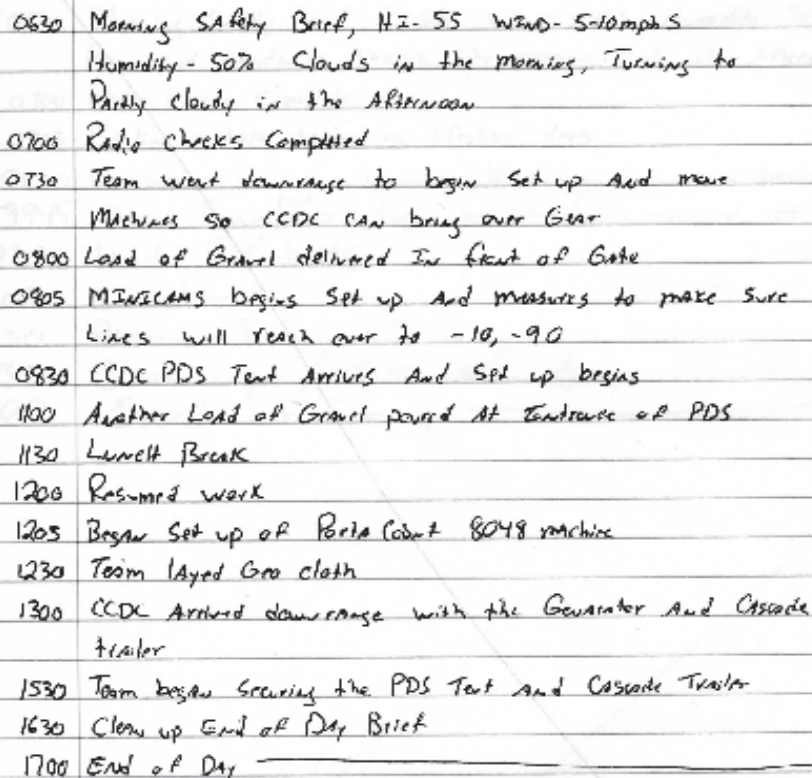 0630 Morning Safety Brief, HI-55 WIND-5-10mph S
Humidity-50% Clouds in the morning, Turning to
Partly cloudy in the Afternoon
0700 Radio Checks Completed
0730 Team went downrange to begin set up And move
Machines so CCDC CAN bring over Gear
0800 Load of Gravel delivered In front of Gate
0805 MINICAMS begins set up And measures to make sure
Lines will reach over to -10, -90
0830 CCDC PDS Tent Arrives And Set up begins
1100 Another Load of Gravel poured At Entrance of PDS
1130 Lunch Break
1200 Resumed work
1205 Began Set up of Porta Count 8048 machine
1230 Team layed Geo cloth
1300 CCDC Arrived downrange with the Generator And Cascade
trailer
1530 Team began Securing the PDS Tent And Cascade Trailer
1630 Clean up End of Day Brief
1700 End of Day